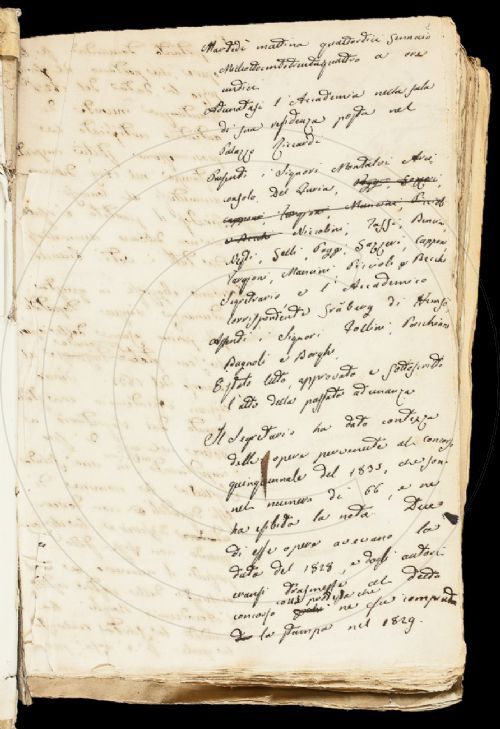 Martedì mattina quattordici Gennaio
Milleottocentotrentaquattro a ore
undici.
Adunatasi l'Accademia nella sala
di sua residenza posta nel
Palazzo Riccardi
Presenti i Signori Montalvi Arci
consolo, Del Furia, Poggi, Gazzeri,
Capponi Targioni, Mancini, Piccioli
e Becchi Niccolini, Tassi, Benci,
Nesti, Gelli, Poggi, Gazzeri, Capponi
Targioni, Mancini, Piccioli e Becchi
Segretario e l'Accademico
corrispondente Gråberg di Hemsö.
Assenti i Signori Collini,
Bagnoli e Borghi.
È stato letto, approvato e sottoscritto
l'atto della passata adunanza
Il Segretario ha dato contezza
delle opere pervenute al concorso
quinquennale del 1833, che sono
nel numero di 66, e ne
ha esibito la nota. Due
di esse opere avevano la
data del 1828, e dagli autori
eransi trasmesse al detto
concorso colla protesta che ne fu compiuta
la stampa nel 1829.